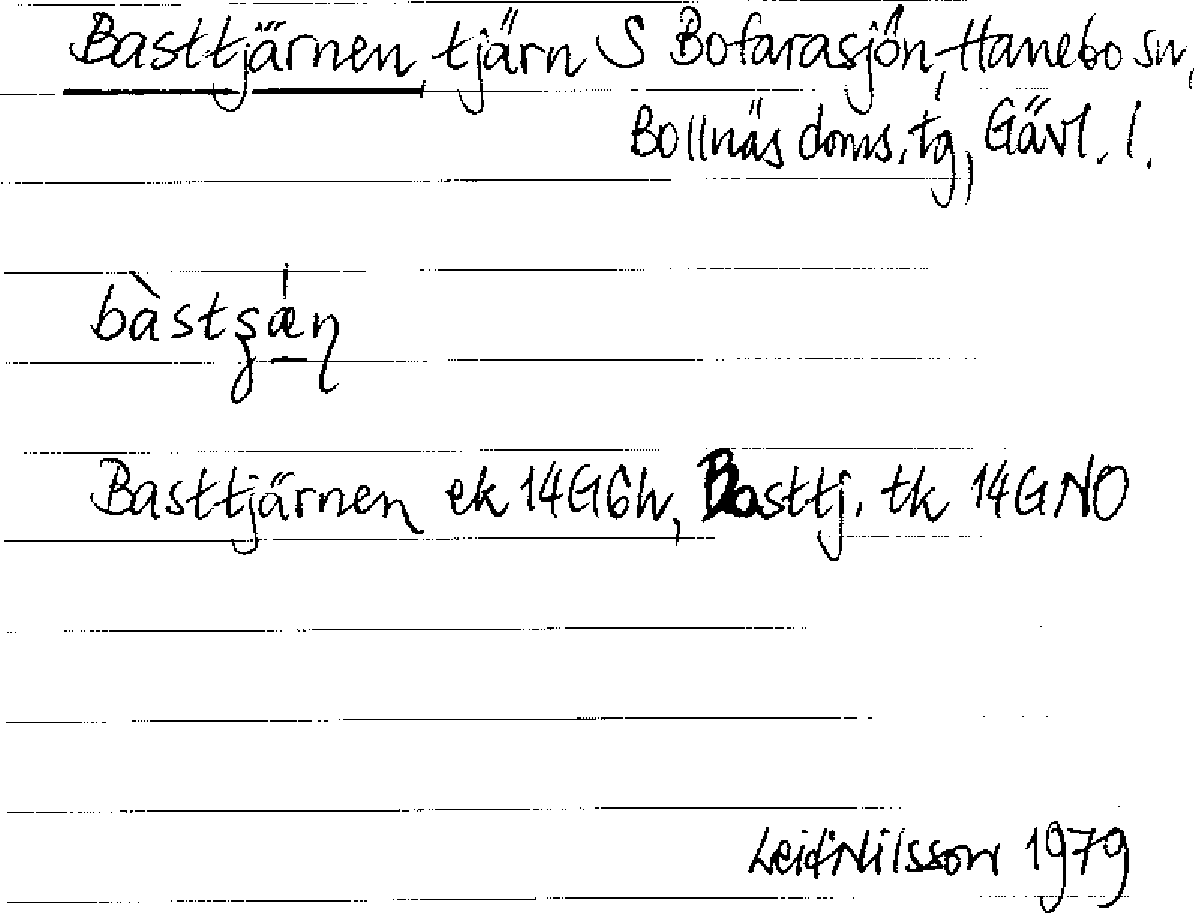 Basttjärnen, tjärn S Bofarasjön, Hanebo sn,
Bollnäs doms. tg, Gävl. l.
bàstʂǽṇ
Basttjärnen ek 14G6h, Basttj. tk 14GNO
Leif Nilsson 1979